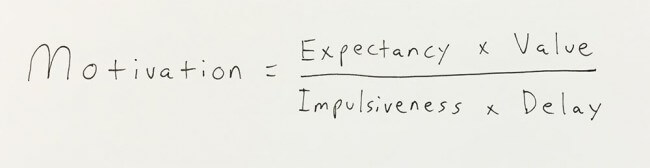 Motivation = Expectancy x Value
Impulsiveness x Delay